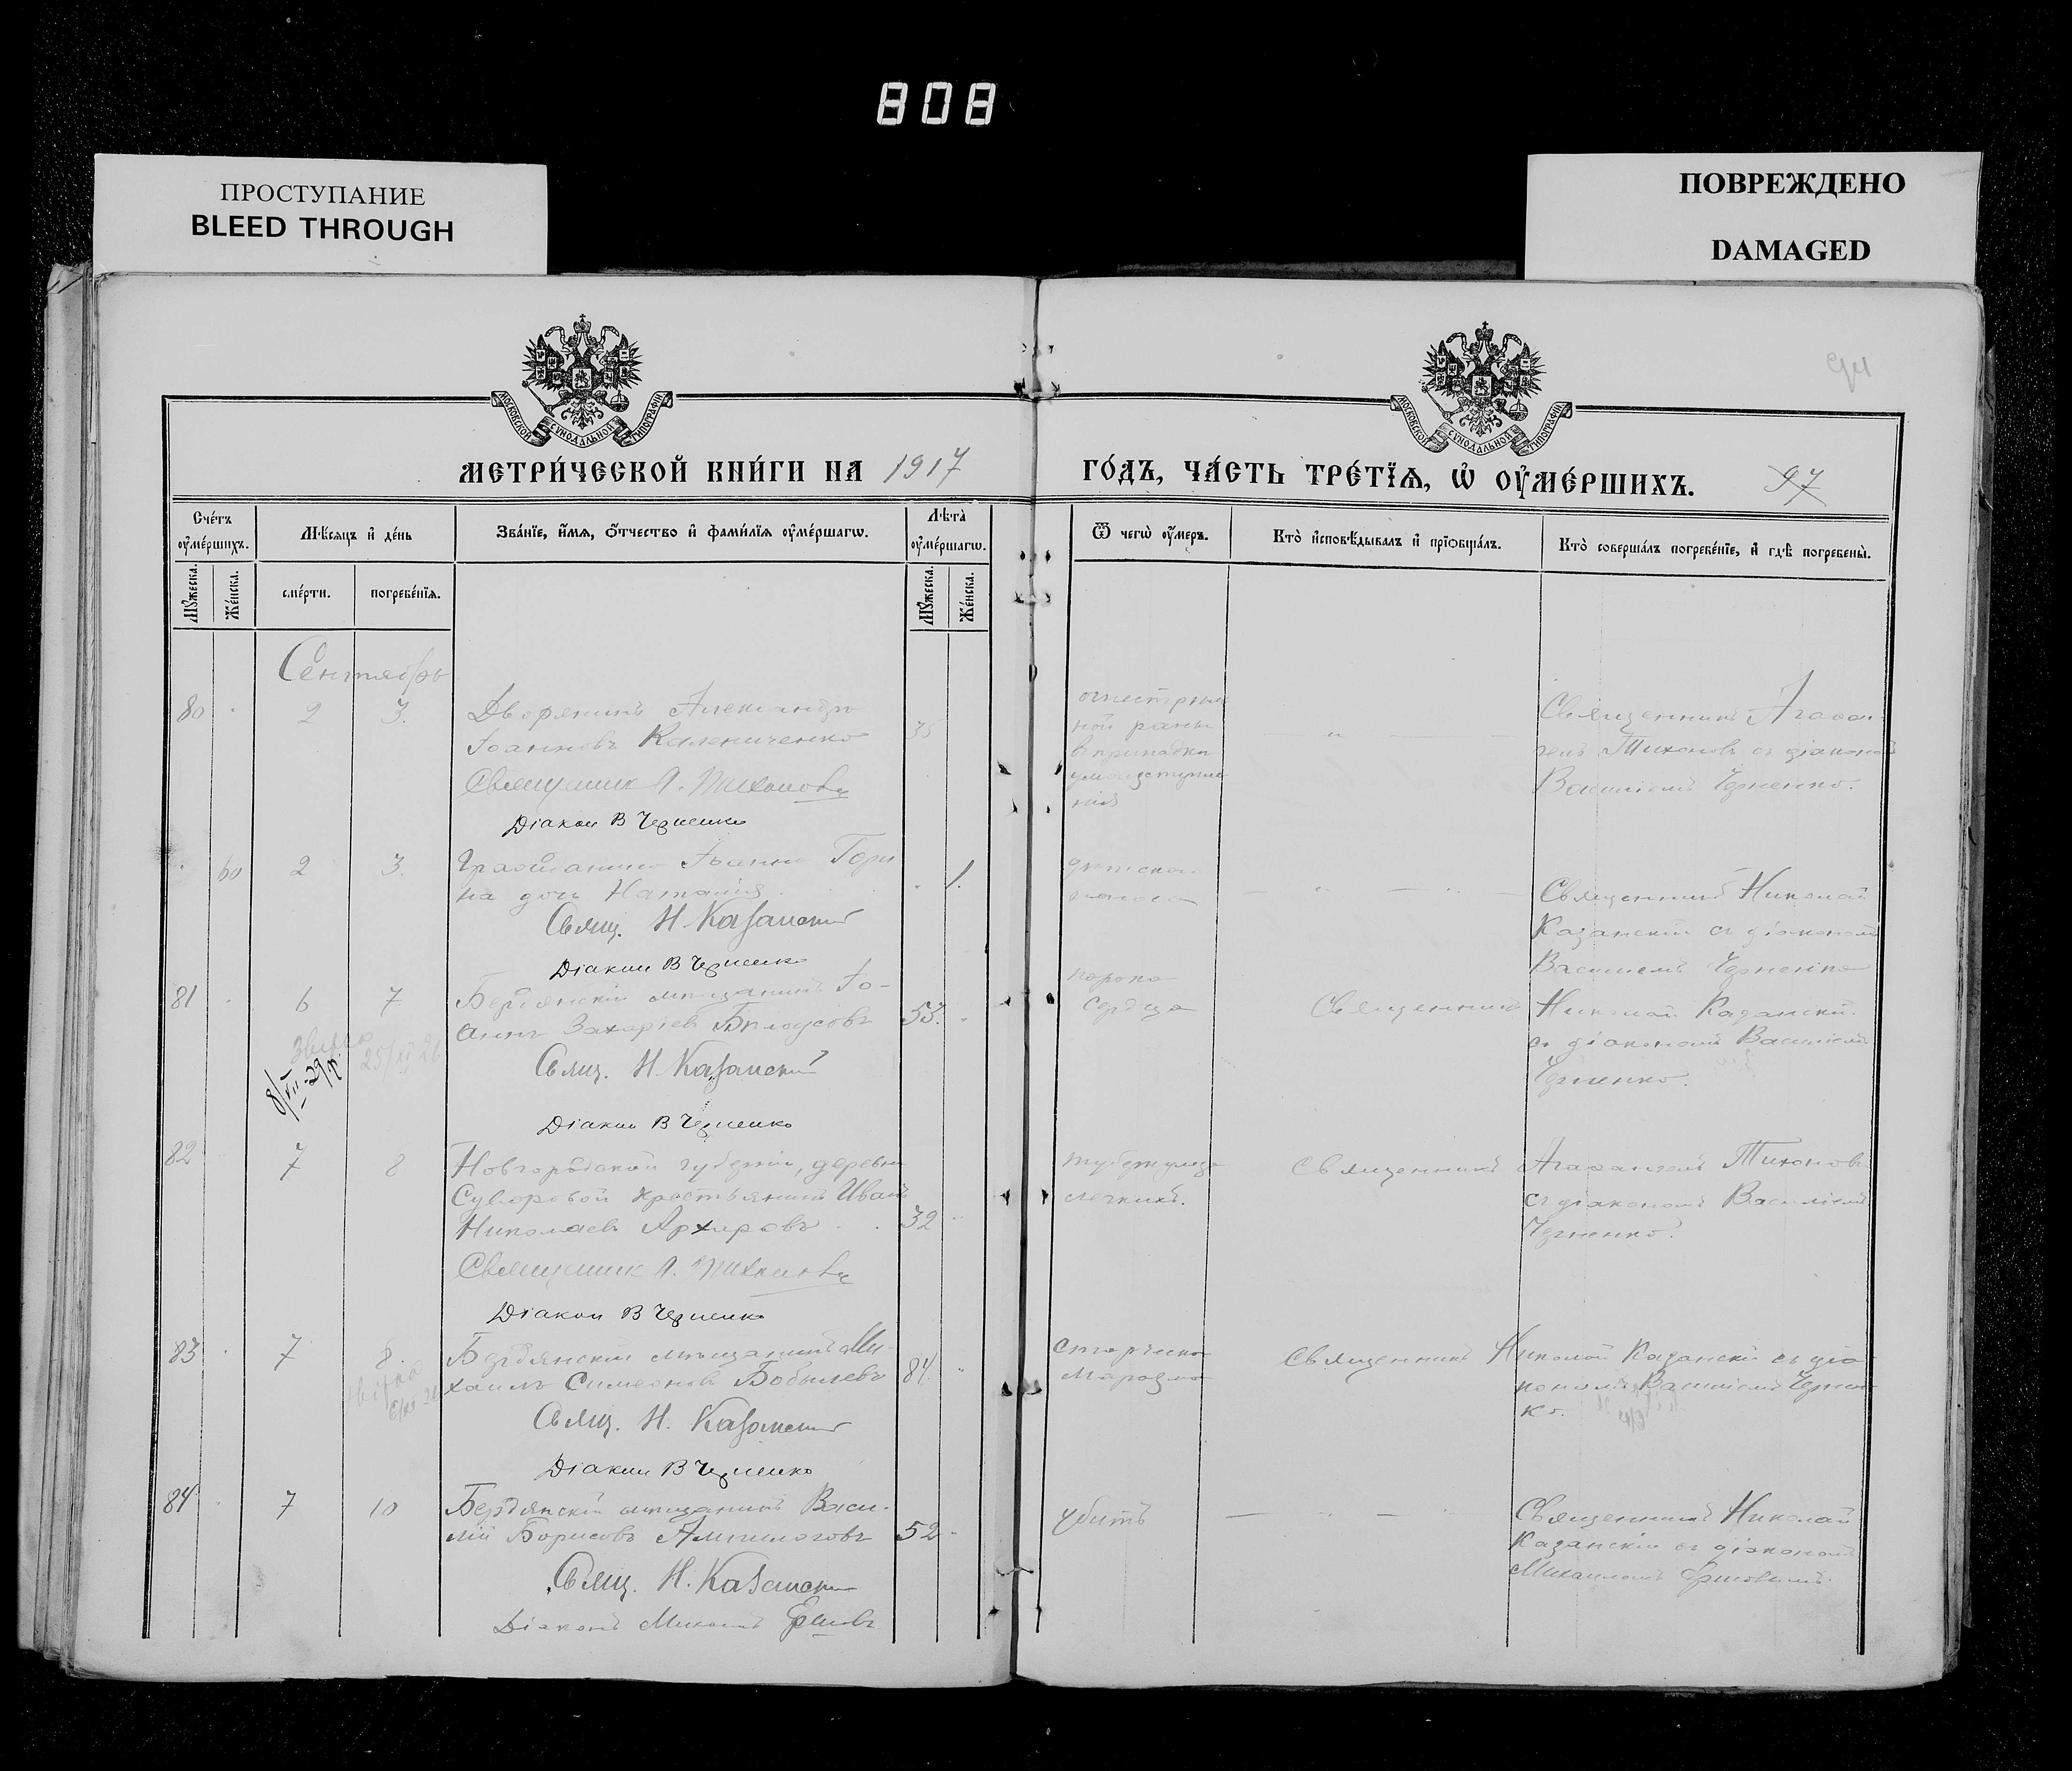 808
ПРОСТУПАНИЕ
BLEED THROUGH
ПОВРЕЖДЕНО
DAMAGED
МОСКОВСКОЙ СУНОДАЛЬНОЙ ТИПОГРАФІИ
МОСКОВСКОЙ СУНОДАЛЬНОЙ ТИПОГРАФІИ
94
МЕТРИ́ЧЕСКОЙ КНИ́ГИ НА 1917
ГО́ДЪ, ЧА́СТЬ ТРЕ́ТЇѦ, Ѡ҆ ОУ҆МЕ́РШИХЪ.
97
Сче́тъ оу҆ме́ршихъ.
Мѣ́сѧцъ и҆ де́нь
Зва́нїе, и҆́мѧ, ѻ҆́тчество и҆ фами́лїѧ оу҆ме́ршагѡ.
Лѣта̀ оу҆ме́ршагѡ.
Ѿ чегѡ̀ оу҆́меръ.
Кто̀ и҆сповѣ́дывалъ и҆ прїѡбща́лъ.
Кто̀ соверша́лъ погребе́нїе, и҆ гдѣ̀ погребены̀.
Мꙋ́жеска.
Же́нска.
сме́рти.
погребе́нїѧ.
Мꙋ́жеска.
Же́нска.
Сентябрь
80 2 3. Дворянинъ Александръ
Іоанновъ Калениченко 35
Священник А. Тихоновъ
Діакон В Черненко
огнестрѣль
ной раны
въ припадкѣ
умоизступле
нія
Священникъ Агаѳан
гелъ Тихоновъ съ діакономъ
Василіемъ Черненко.
60 2 3.
на дочь Наталія 1.
Свящ. Н. Казанский
Діакон В Черненко
Священникъ Николай
Казанскій съ діакономъ
Василіемъ Черненко
81 6 7 Бердянскій мѣщанинъ Іо-
аннъ Захаріевъ Бѣлоусовъ 53.
8/XII-29 р.
25/XI 26
Свящ. Н. Казанский
Діакон В Черненко
порока
сердца
Священникъ Николай Казанскій.
съ діакономъ Василіемъ
Черненко.
82 7 8 Новгородской губерніи, деревни
Суворовой крестьянинъ Иванъ
Николаевъ Архировъ 32
Священник А. Тихоновъ
Діакон В Черненко
туберкулеза
легкихъ.
Священникъ Агаѳангелъ Тихоновъ
съ діакономъ Василіемъ
Черненко.
83 7 8. Бердянскій мѣщанинъ Ми-
хаилъ Симеоновъ Бобылевъ 84.
Свящ. Н. Казанский
Діакон В Черненко
старческаго
маразма
Священникъ Николай Казанскій съ діа-
кономъ Василіемъ Чернен-
ко.
84 7 10 Бердянскій мѣщанинъ Васи-
лій Борисовъ Ампилоговъ 52
Свящ. Н. Казанский
Діаконъ Михаилъ Ершовъ
убитъ
Священникъ Николай
Казанскій съ діакономъ
Михаиломъ Ершовымъ.